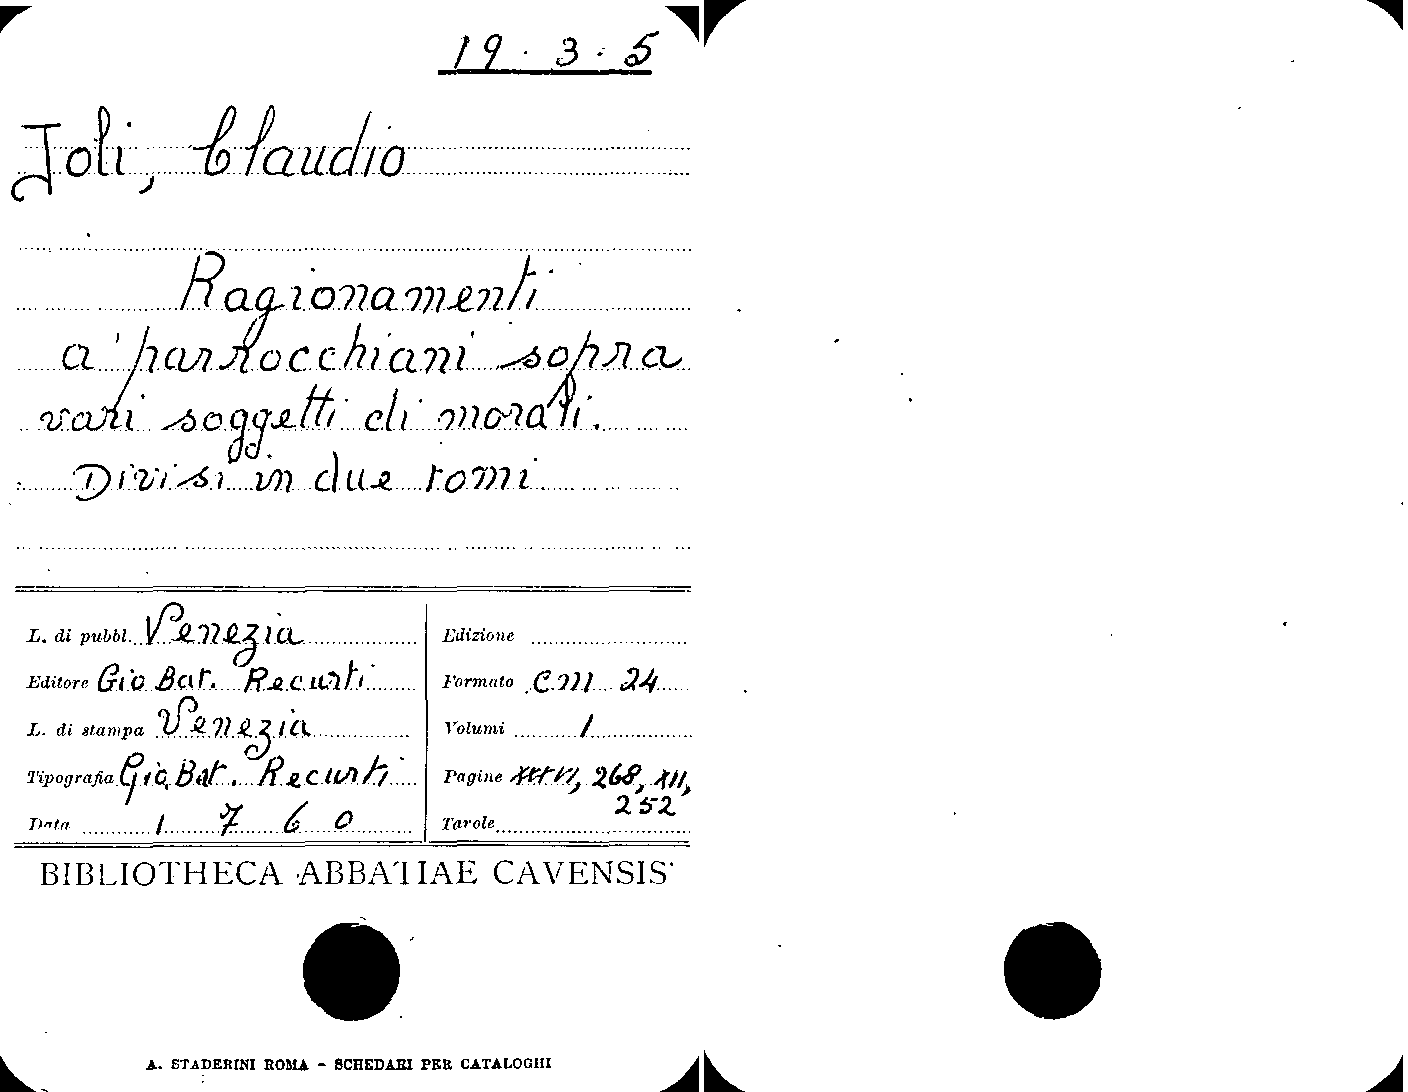 19 · 3 · 5
Joli, Claudio
Ragionamenti
a' parrocchiani sopra
vari soggetti di morali.
Divisi in due tomi
L. di pubbl. Venezia
Editore Gio Bat. Recurti
L. di stampa Venezia
Tipografia Gio Bat. Recurti
Data 1760
Edizione
Formato cm 24
Volumi 1
Pagine XXXVI, 268, XII,
252
Tavole
BIBLIOTHECA ABBATIAE CAVENSIS
A. STADERINI ROMA - SCHEDARI PER CATALOGHI